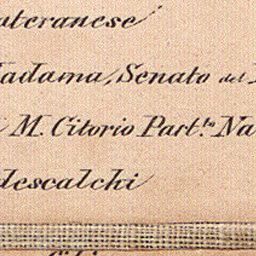 ateranese
adama, Senato del
M. Citorio Part.to Na
descalchi